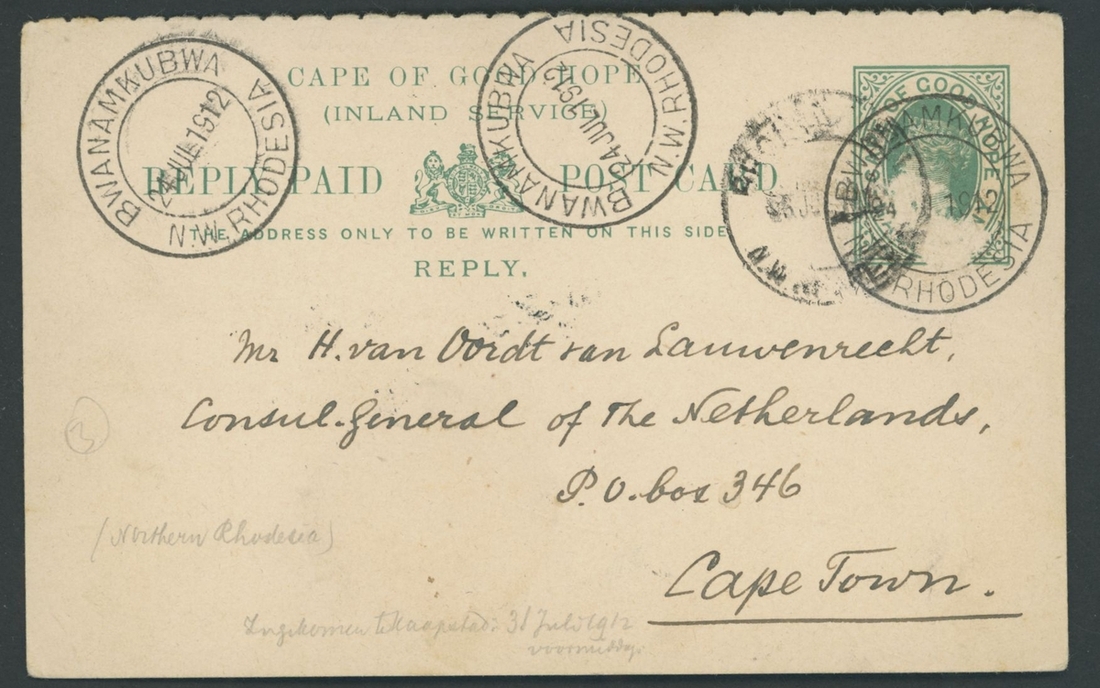 CAPE OF GOOD HOPE
(INLAND SERVICE)
REPLY PAID POST CARD
THE ADDRESS ONLY TO BE WRITTEN ON THIS SIDE
REPLY.
BWANAMKUBWA
24 JUL 1912
N.W. RHODESIA
BWANAMKUBWA
24 JUL 1912
N.W. RHODESIA
OF GOOD HOPE
1912
RHODESIA
N.W.
Mr H. van Oordt van Lauwenrecht,
Consul-General of The Netherlands,
P.O. box 346
Cape Town.
3
(Northern Rhodesia)
Ingekomen te Kaapstad: 31 Juli 1912
voormiddag.